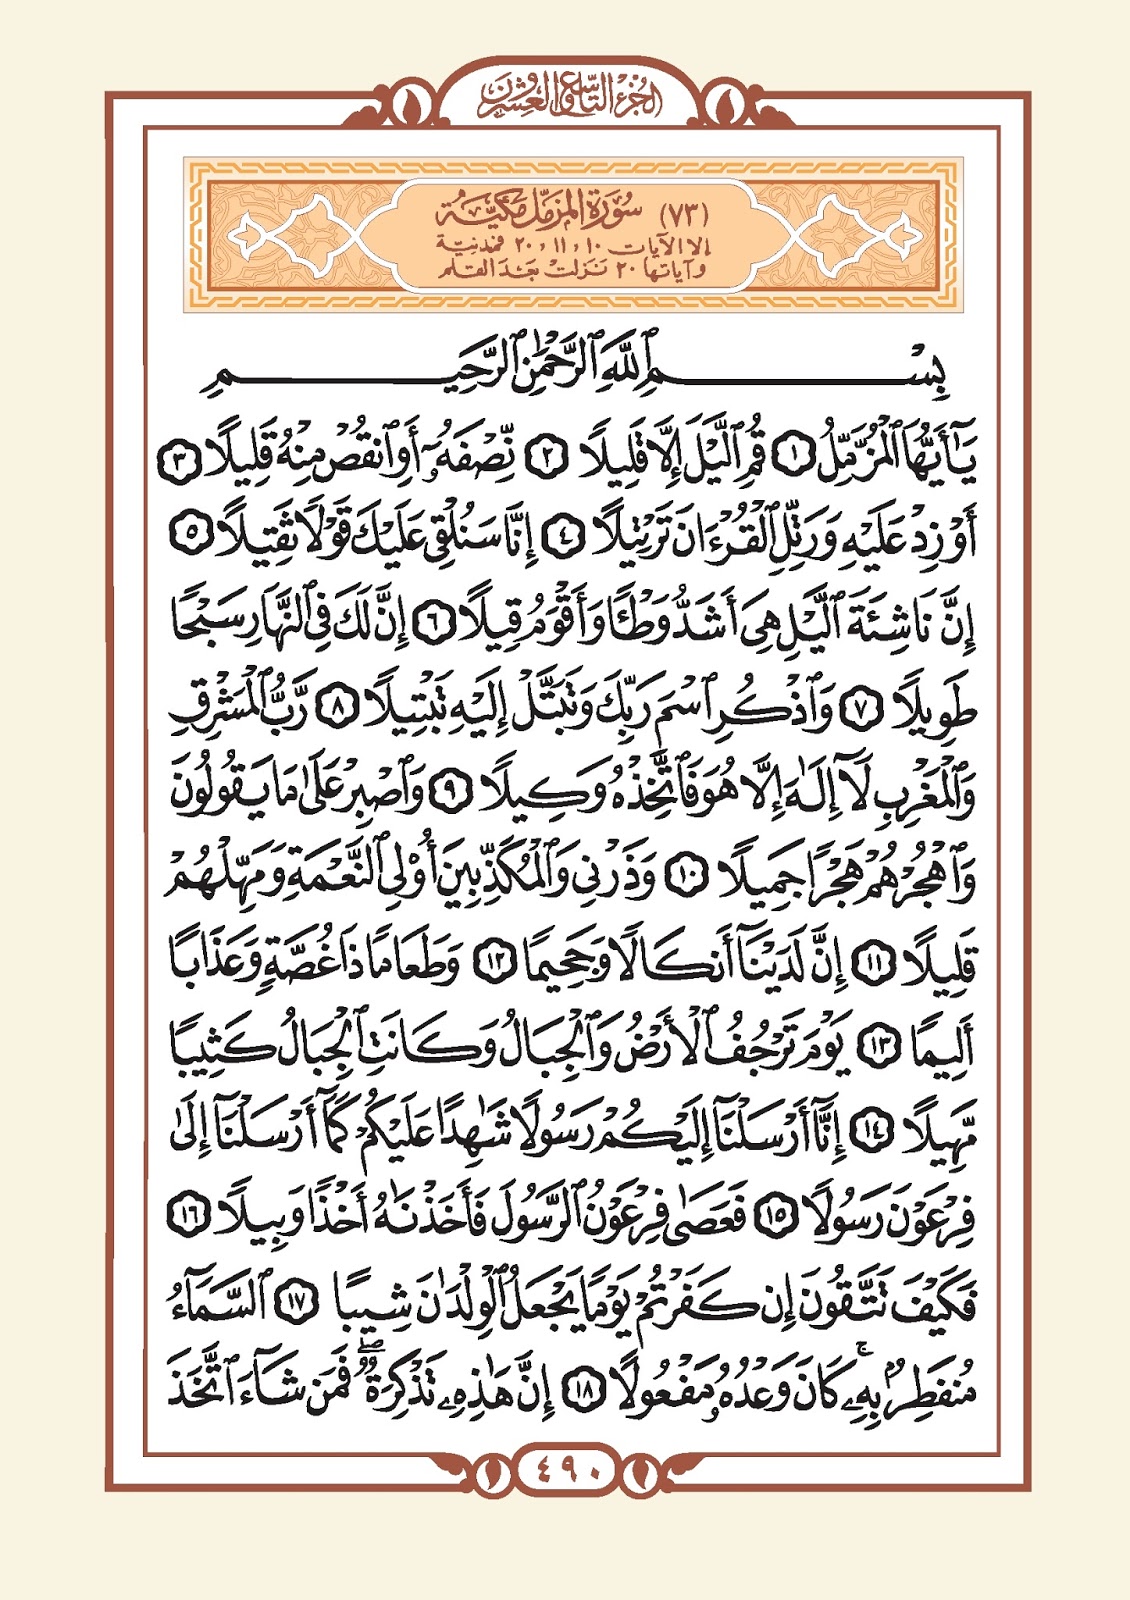 الجزء التاسع والعشرون
(٧٣) سورة المزمل مكية
إلا الآيات ١٠ و ١١ و ٢٠ فمدنية
وآياتها ٢٠ نزلت بعد القلم
بِسْمِ ٱللَّهِ ٱلرَّحْمَٰنِ ٱلرَّحِيمِ
يَٰٓأَيُّهَا ٱلْمُزَّمِّلُ ١ قُمِ ٱلَّيْلَ إِلَّا قَلِيلًا ٢ نِّصْفَهُۥٓ أَوِ ٱنقُصْ مِنْهُ قَلِيلًا ٣
أَوْ زِدْ عَلَيْهِ وَرَتِّلِ ٱلْقُرْءَانَ تَرْتِيلًا ٤ إِنَّا سَنُلْقِى عَلَيْكَ قَوْلًا ثَقِيلًا ٥
إِنَّ نَاشِئَةَ ٱلَّيْلِ هِىَ أَشَدُّ وَطْـًٔا وَأَقْوَمُ قِيلًا ٦ إِنَّ لَكَ فِى ٱلنَّهَارِ سَبْحًا
طَوِيلًا ٧ وَٱذْكُرِ ٱسْمَ رَبِّكَ وَتَبَتَّلْ إِلَيْهِ تَبْتِيلًا ٨ رَّبُّ ٱلْمَشْرِقِ
وَٱلْمَغْرِبِ لَآ إِلَٰهَ إِلَّا هُوَ فَٱتَّخِذْهُ وَكِيلًا ٩ وَٱصْبِرْ عَلَىٰ مَا يَقُولُونَ
وَٱهْجُرْهُمْ هَجْرًا جَمِيلًا ١٠ وَذَرْنِى وَٱلْمُكَذِّبِينَ أُو۟لِى ٱلنَّعْمَةِ وَمَهِّلْهُمْ
قَلِيلًا ١١ إِنَّ لَدَيْنَآ أَنكَالًا وَجَحِيمًا ١٢ وَطَعَامًا ذَا غُصَّةٍ وَعَذَابًا
أَلِيمًا ١٣ يَوْمَ تَرْجُفُ ٱلْأَرْضُ وَٱلْجِبَالُ وَكَانَتِ ٱلْجِبَالُ كَثِيبًا
مَّهِيلًا ١٤ إِنَّآ أَرْسَلْنَآ إِلَيْكُمْ رَسُولًا شَٰهِدًا عَلَيْكُمْ كَمَآ أَرْسَلْنَآ إِلَىٰ
فِرْعَوْنَ رَسُولًا ١٥ فَعَصَىٰ فِرْعَوْنُ ٱلرَّسُولَ فَأَخَذْنَٰهُ أَخْذًا وَبِيلًا ١٦
فَكَيْفَ تَتَّقُونَ إِن كَفَرْتُمْ يَوْمًا يَجْعَلُ ٱلْوِلْدَٰنَ شِيبًا ١٧ ٱلسَّمَآءُ
مُنفَطِرٌۢ بِهِۦ ۚ كَانَ وَعْدُهُۥ مَفْعُولًا ١٨ إِنَّ هَٰذِهِۦ تَذْكِرَةٌ ۖ فَمَن شَآءَ ٱتَّخَذَ
٤٩٠